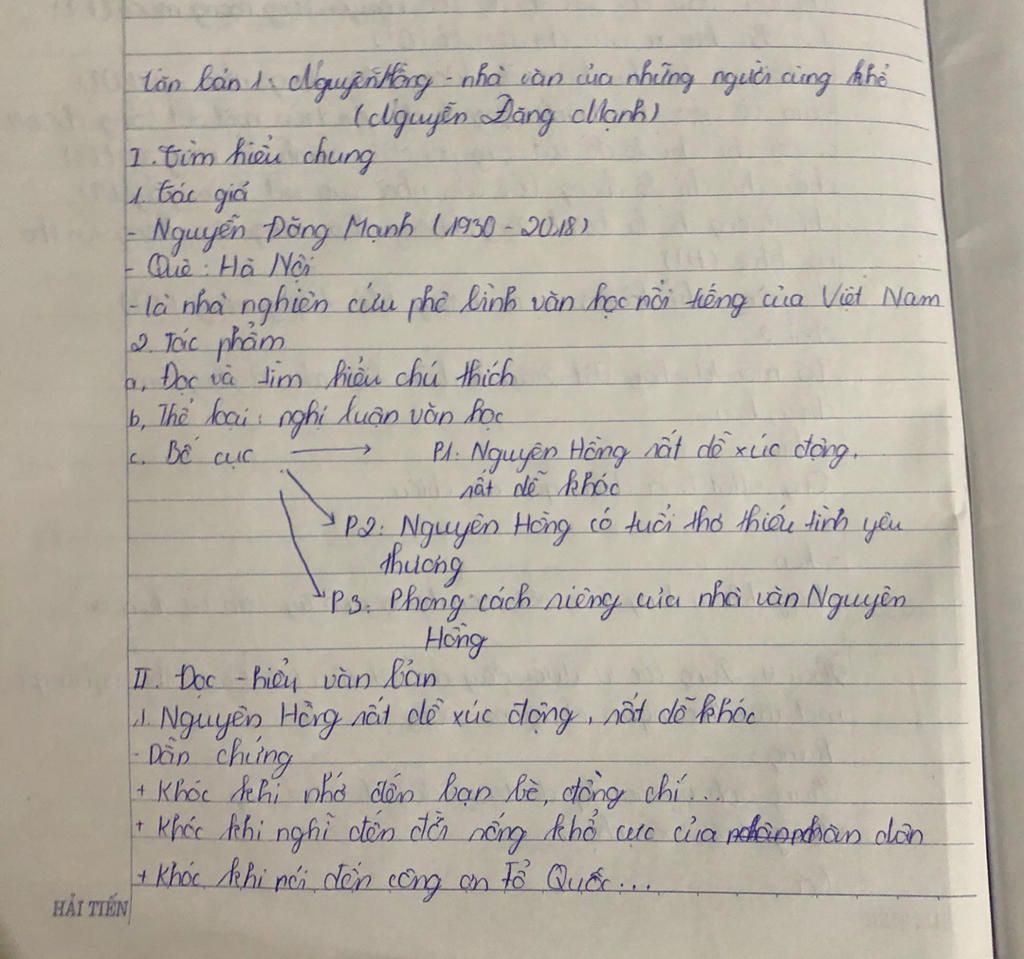 Văn bản 1: Nguyên Hồng - nhà văn của những người cùng khổ
(Nguyễn Đăng Mạnh)
I. Tìm hiểu chung
1. Tác giả
- Nguyễn Đăng Mạnh (1930 - 2018)
- Quê: Hà Nội
- là nhà nghiên cứu phê bình văn học nổi tiếng của Việt Nam
2. Tác phẩm
a, Đọc và tìm hiểu chú thích
b, Thể loại: nghị luận văn học
c. Bố cục → P1: Nguyên Hồng rất dễ xúc động,
rất dễ khóc
P2: Nguyên Hồng có tuổi thơ thiếu tình yêu
thương
P3: Phong cách riêng của nhà văn Nguyên
Hồng
II. Đọc - hiểu văn bản
1. Nguyên Hồng rất dễ xúc động, rất dễ khóc
- Dẫn chứng
+ Khóc khi nhớ đến bạn bè, đồng chí...
+ Khóc khi nghĩ đến đời sống khổ cực của nhân dân
+ Khóc khi nói đến công ơn Tổ Quốc...
HẢI TIẾN